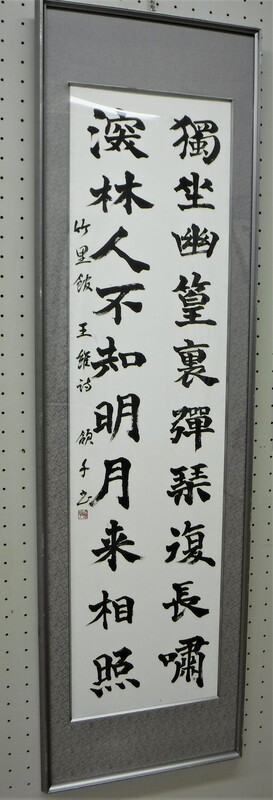 獨坐幽篁裏彈琴復長嘯
深林人不知明月来相照
竹里館 王維诗 領千书